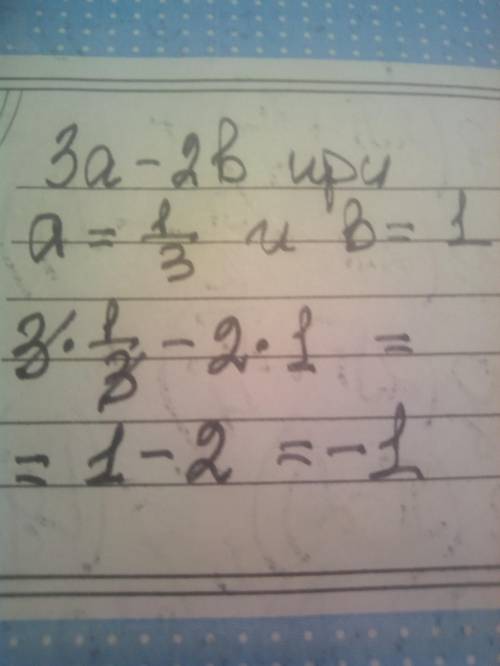 3a - 2b при
a = 1/3 и b = 1
3 · 1/3 - 2 · 1 =
= 1 - 2 = -1